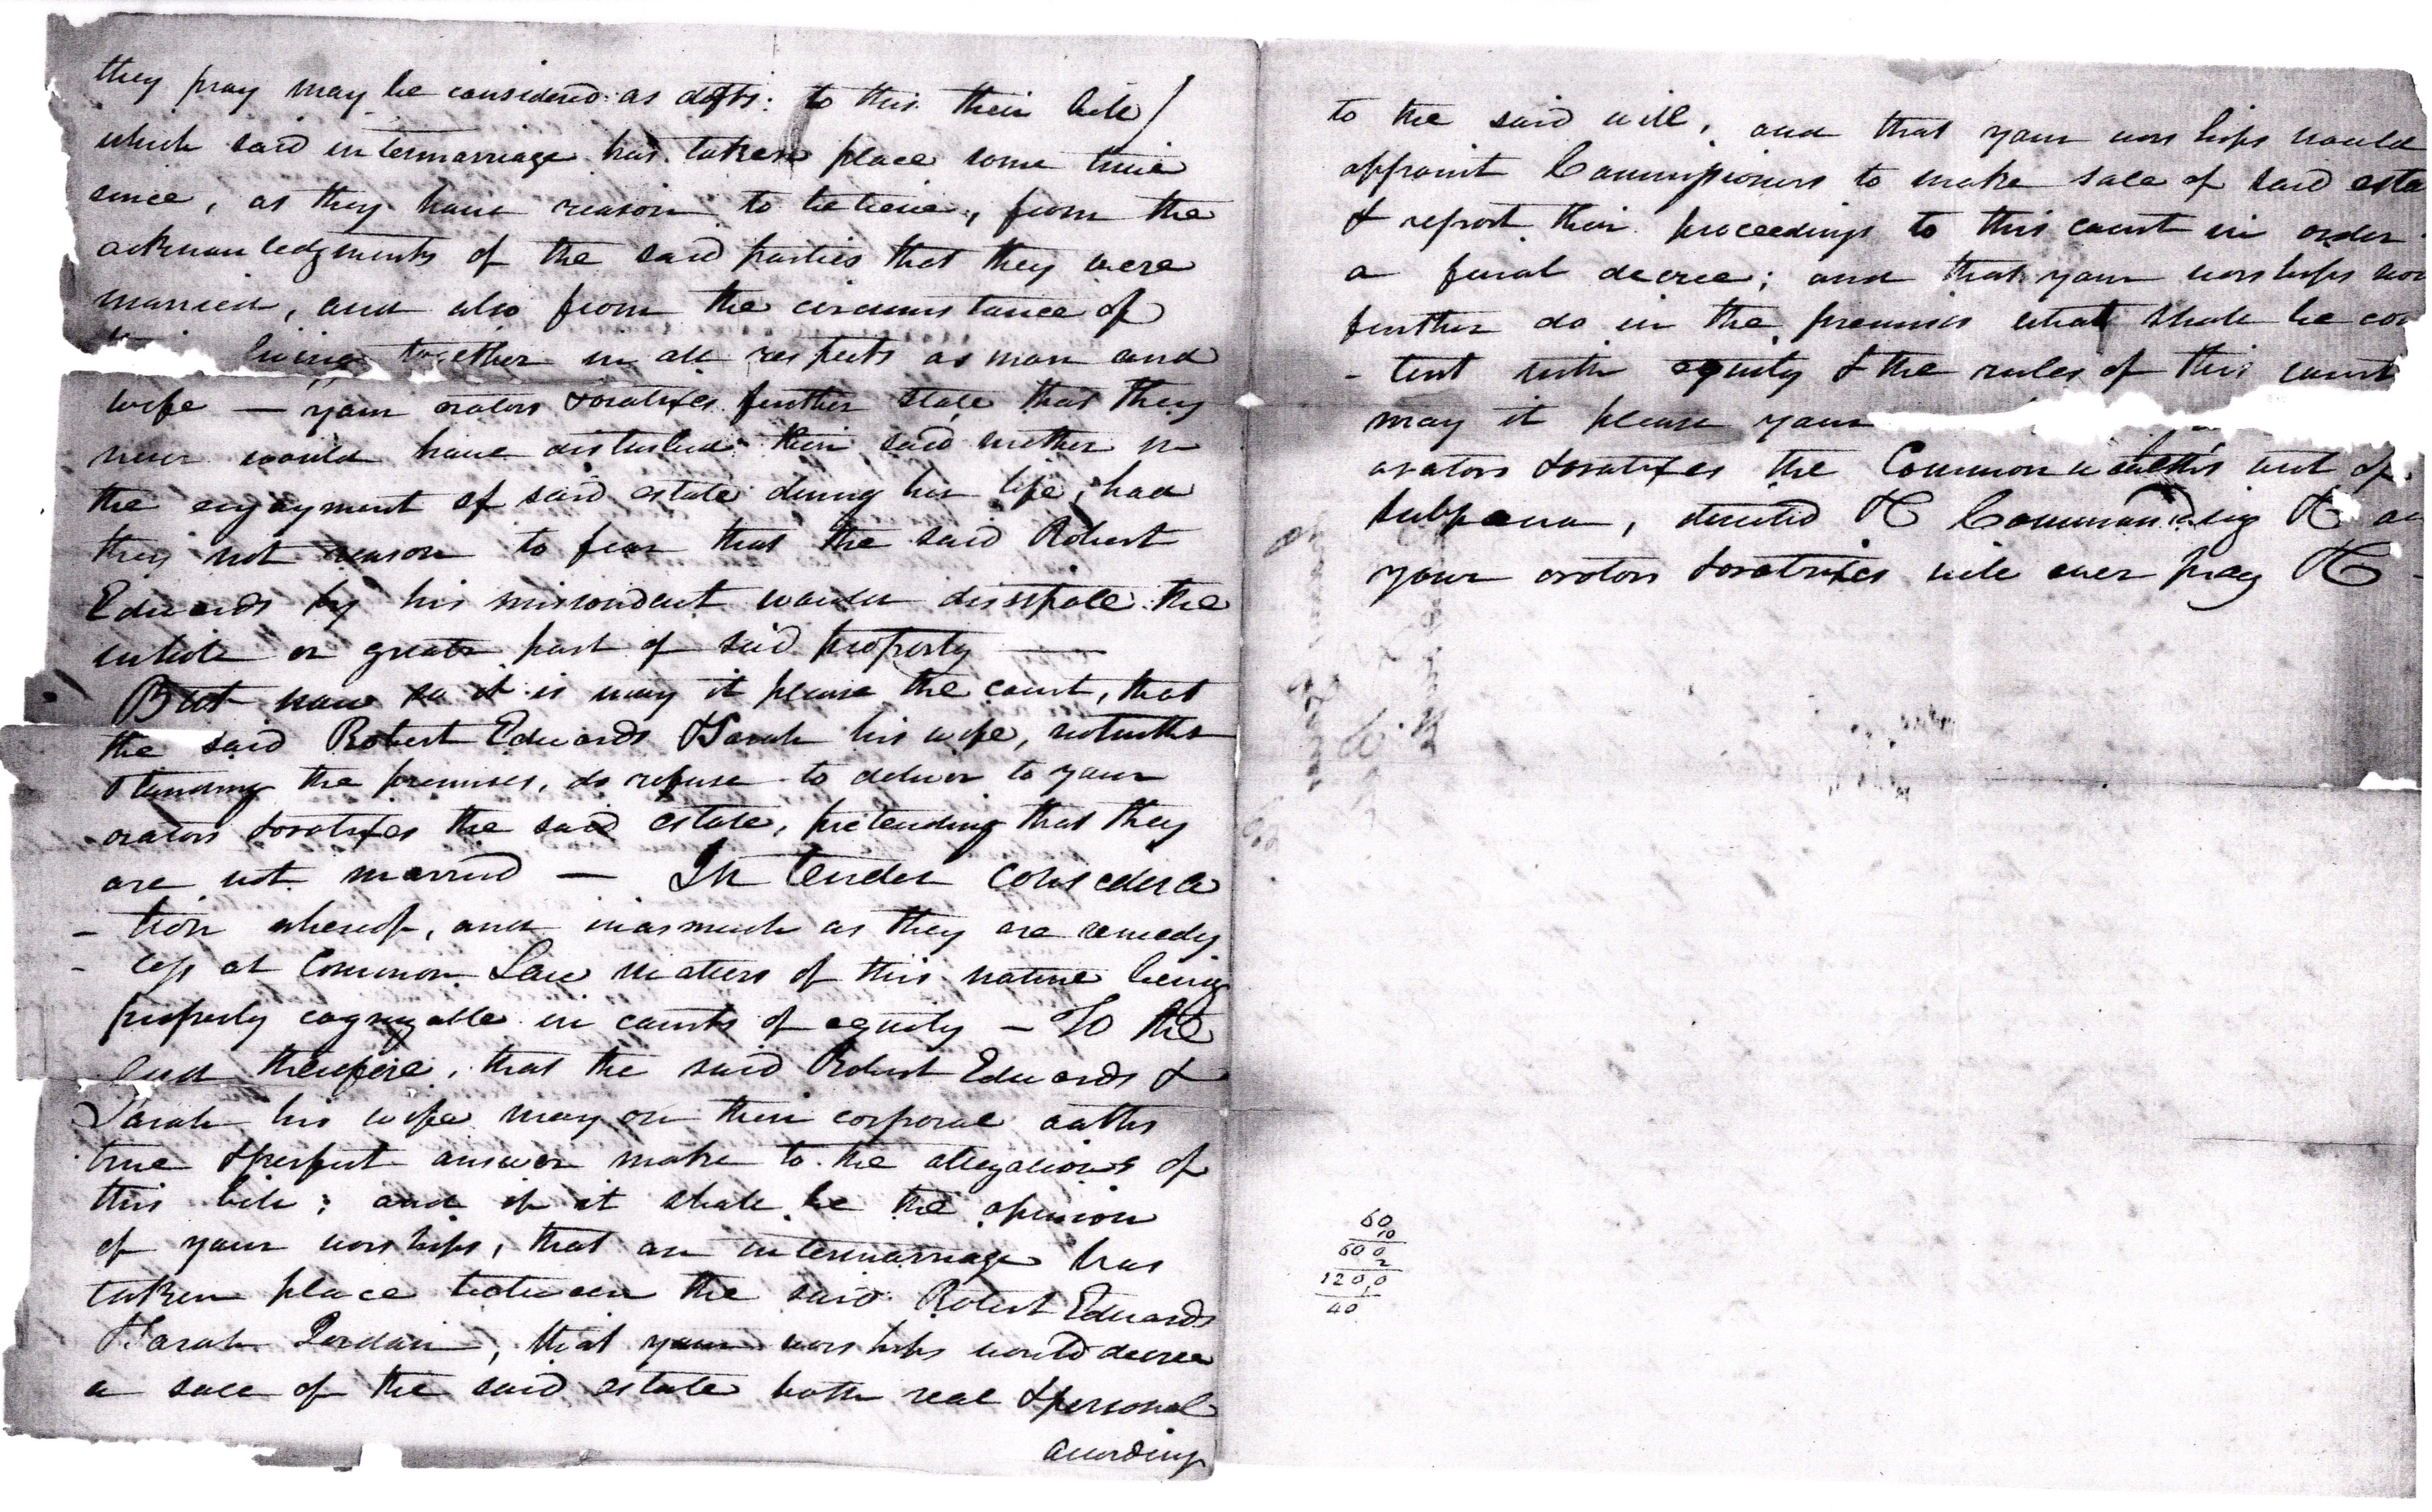 they pray may be considered as defts: to this their bill /
which said intermarriage has taken place some time
since, as they have reason to believe, from the
acknowledgments of the said parties that they were
married, and also from the circumstance of
living together in all respects as man and
wife — your orators & oratrixes further state that they
never would have disturbed their said mother in
the enjoyment of said estate during her life, had
they not reason to fear that the said Robert
Edwards by his misconduct would dissipate the
whole or greater part of said property —
But now so it is may it please the court, that
the said Robert Edwards & Sarah his wife, notwith
standing the premises, do refuse to deliver to your
orators & oratrixes the said estate, pretending that they
are not married — In tender considera
- tion whereof, and inasmuch as they are remedy
- less at Common Law matters of this nature being
properly cognizable in courts of equity — To the
end therefore, that the said Robert Edwards &
Sarah his wife may on their corporal oaths
true & perfect answer make to the allegations of
this bill; and if it shall be the opinion
of your worships, that an intermarriage has
taken place between the said Robert Edwards
& Sarah Jordan, that your worships would decree
a sale of the said estate both real & personal
according
to the said will, and that your worships would
appoint Commissioners to make sale of said esta
& report their proceedings to this court in order
a final decree; and that your worships wou
further do in the premises what shall be con
- tent with equity & the rules of this court
may it please your
orators & oratrixes the Commonwealths writ of
subpoena, directed &C Commanding &C an
your orators & oratrixes will ever pray &C -
60
10
600
2
1200
1
40